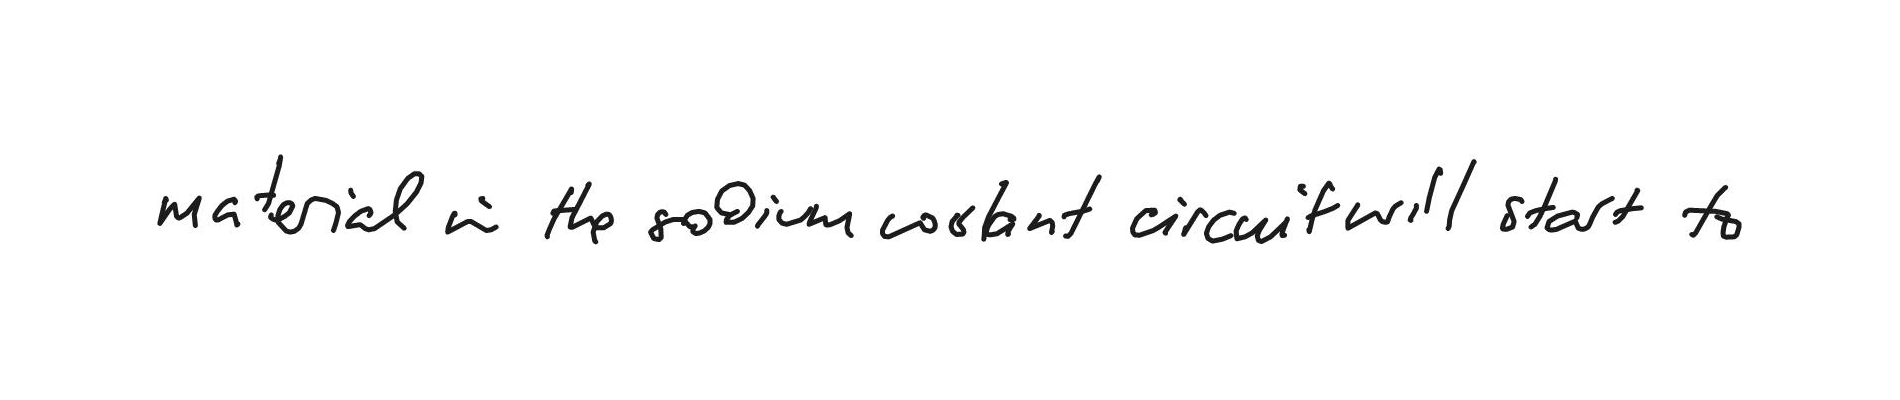 material in the sodium coolant circuit will start to